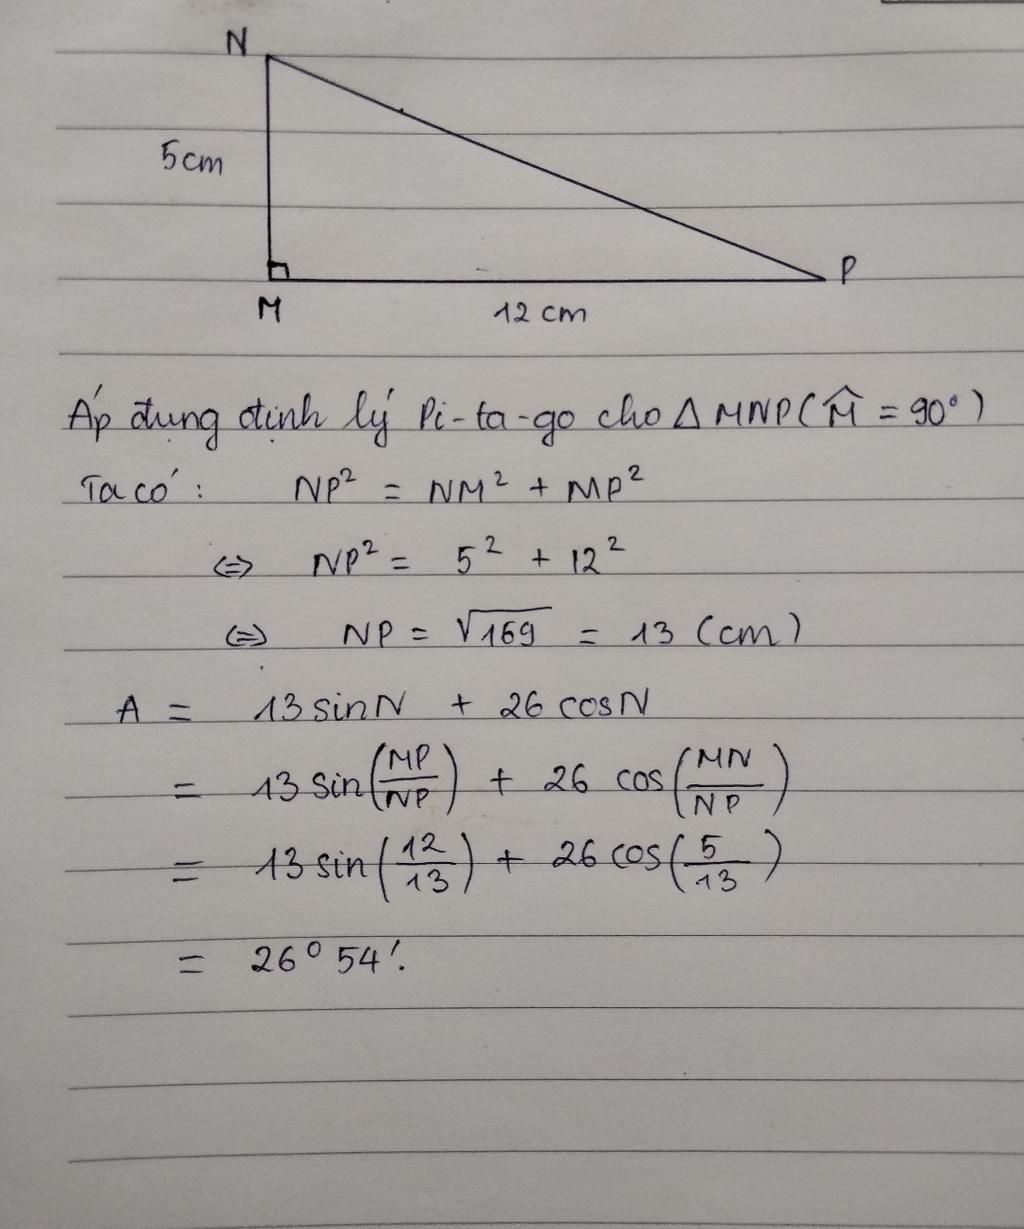 N
5cm
M
P
12 cm
Áp dụng định lý Pi-ta-go cho Δ MNP ( M̂ = 90° )
Ta có : NP² = NM² + MP²
⇔ NP² = 5² + 12²
⇔ NP = √169 = 13 (cm)
A = 13 sinN + 26 cosN
= 13 sin(MP/NP) + 26 cos(MN/NP)
= 13 sin(12/13) + 26 cos(5/13)
= 26° 54'.